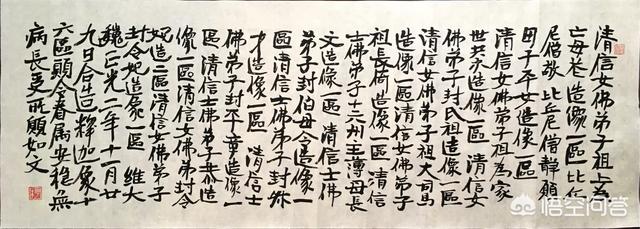 清信女佛弟子祖上為
亡母杜造像一區比丘
尼僧敬比丘尼僧靜願
田子平安造像一區
清信女佛弟子祖為家
世共永造像一區清信女
佛弟子封民祖造像一區
清信女佛弟子祖大司馬
造像一區清信女佛弟子
祖長倚造像一區清信
士佛弟子十六州主薄母長
文造像一區清信士佛
弟子封伯母令造像一
區清信士佛弟子封弥
才造像一區清信士
佛弟子封平黄造像一
區清信士佛弟子恭造
像一區清信女佛封令
妃造一區清信女佛弟子
封令妃造像一區維大
魏正光二年十一月廿
九日合造釋迦像十
六區頭令眷属安穩無
病長是所願如文
悟空问答